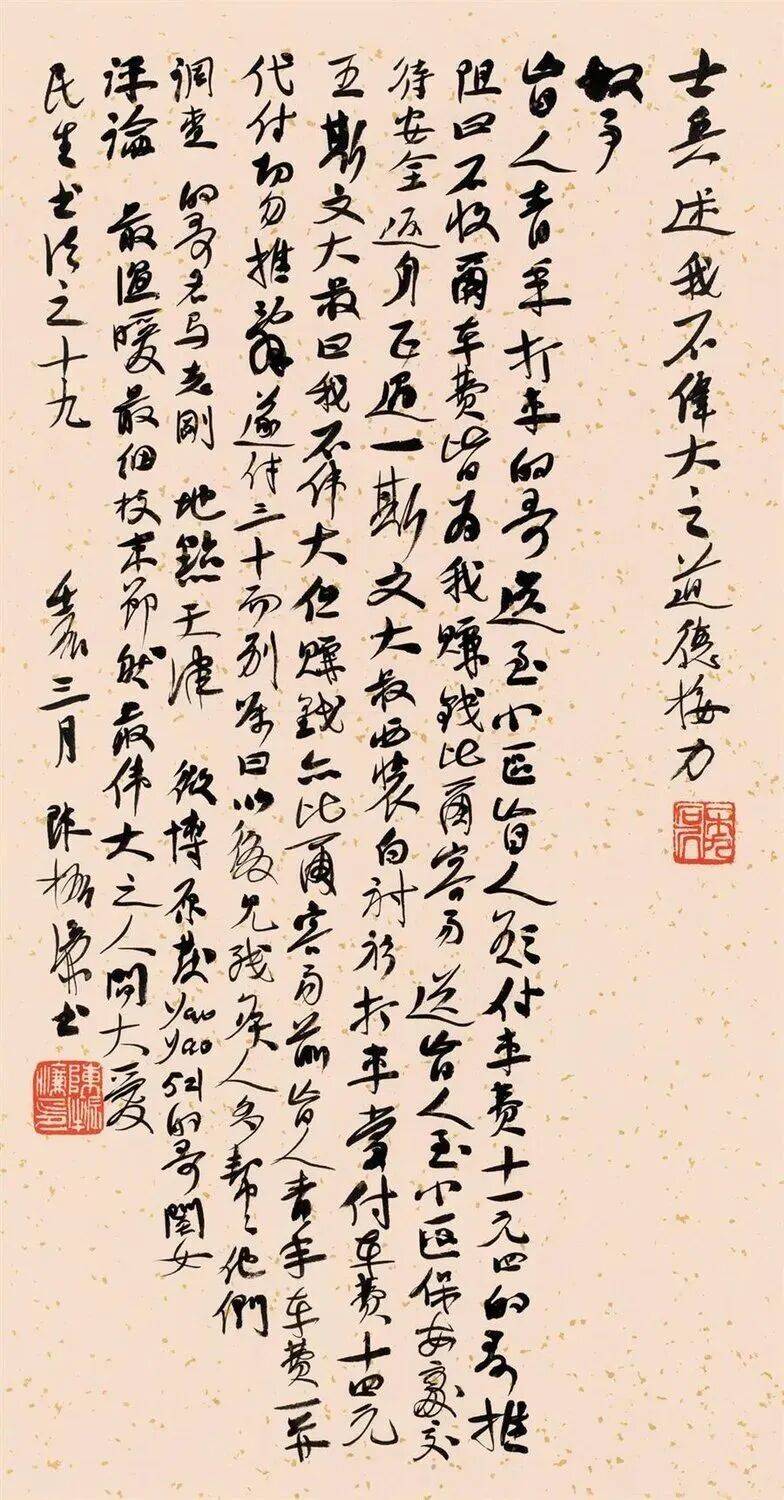 士兵述我不偉大之道德接力
叙事
盲人青年打車的哥送至小區盲人欲付車費十一元四的哥推
阻曰不收爾車費皆为我賺錢比爾容易送盲人至小區保安處交
待安全返身正遇一斯文大叔西裝白衬衫打車當付車費十四元
五斯文大叔曰我不伟大但賺錢亦比爾容易前盲人青年車費一并
代付切勿推辭遂付三十而别嘱曰以後见残疾人多幫々他們
調查 的哥名马志剛 地點天津 微博原发yaoyao521的哥閨女
评論 最温暖最细枝末節然最伟大之人間大愛
民生书法之十九 壬辰三月 陈振濂书
陳振濂印